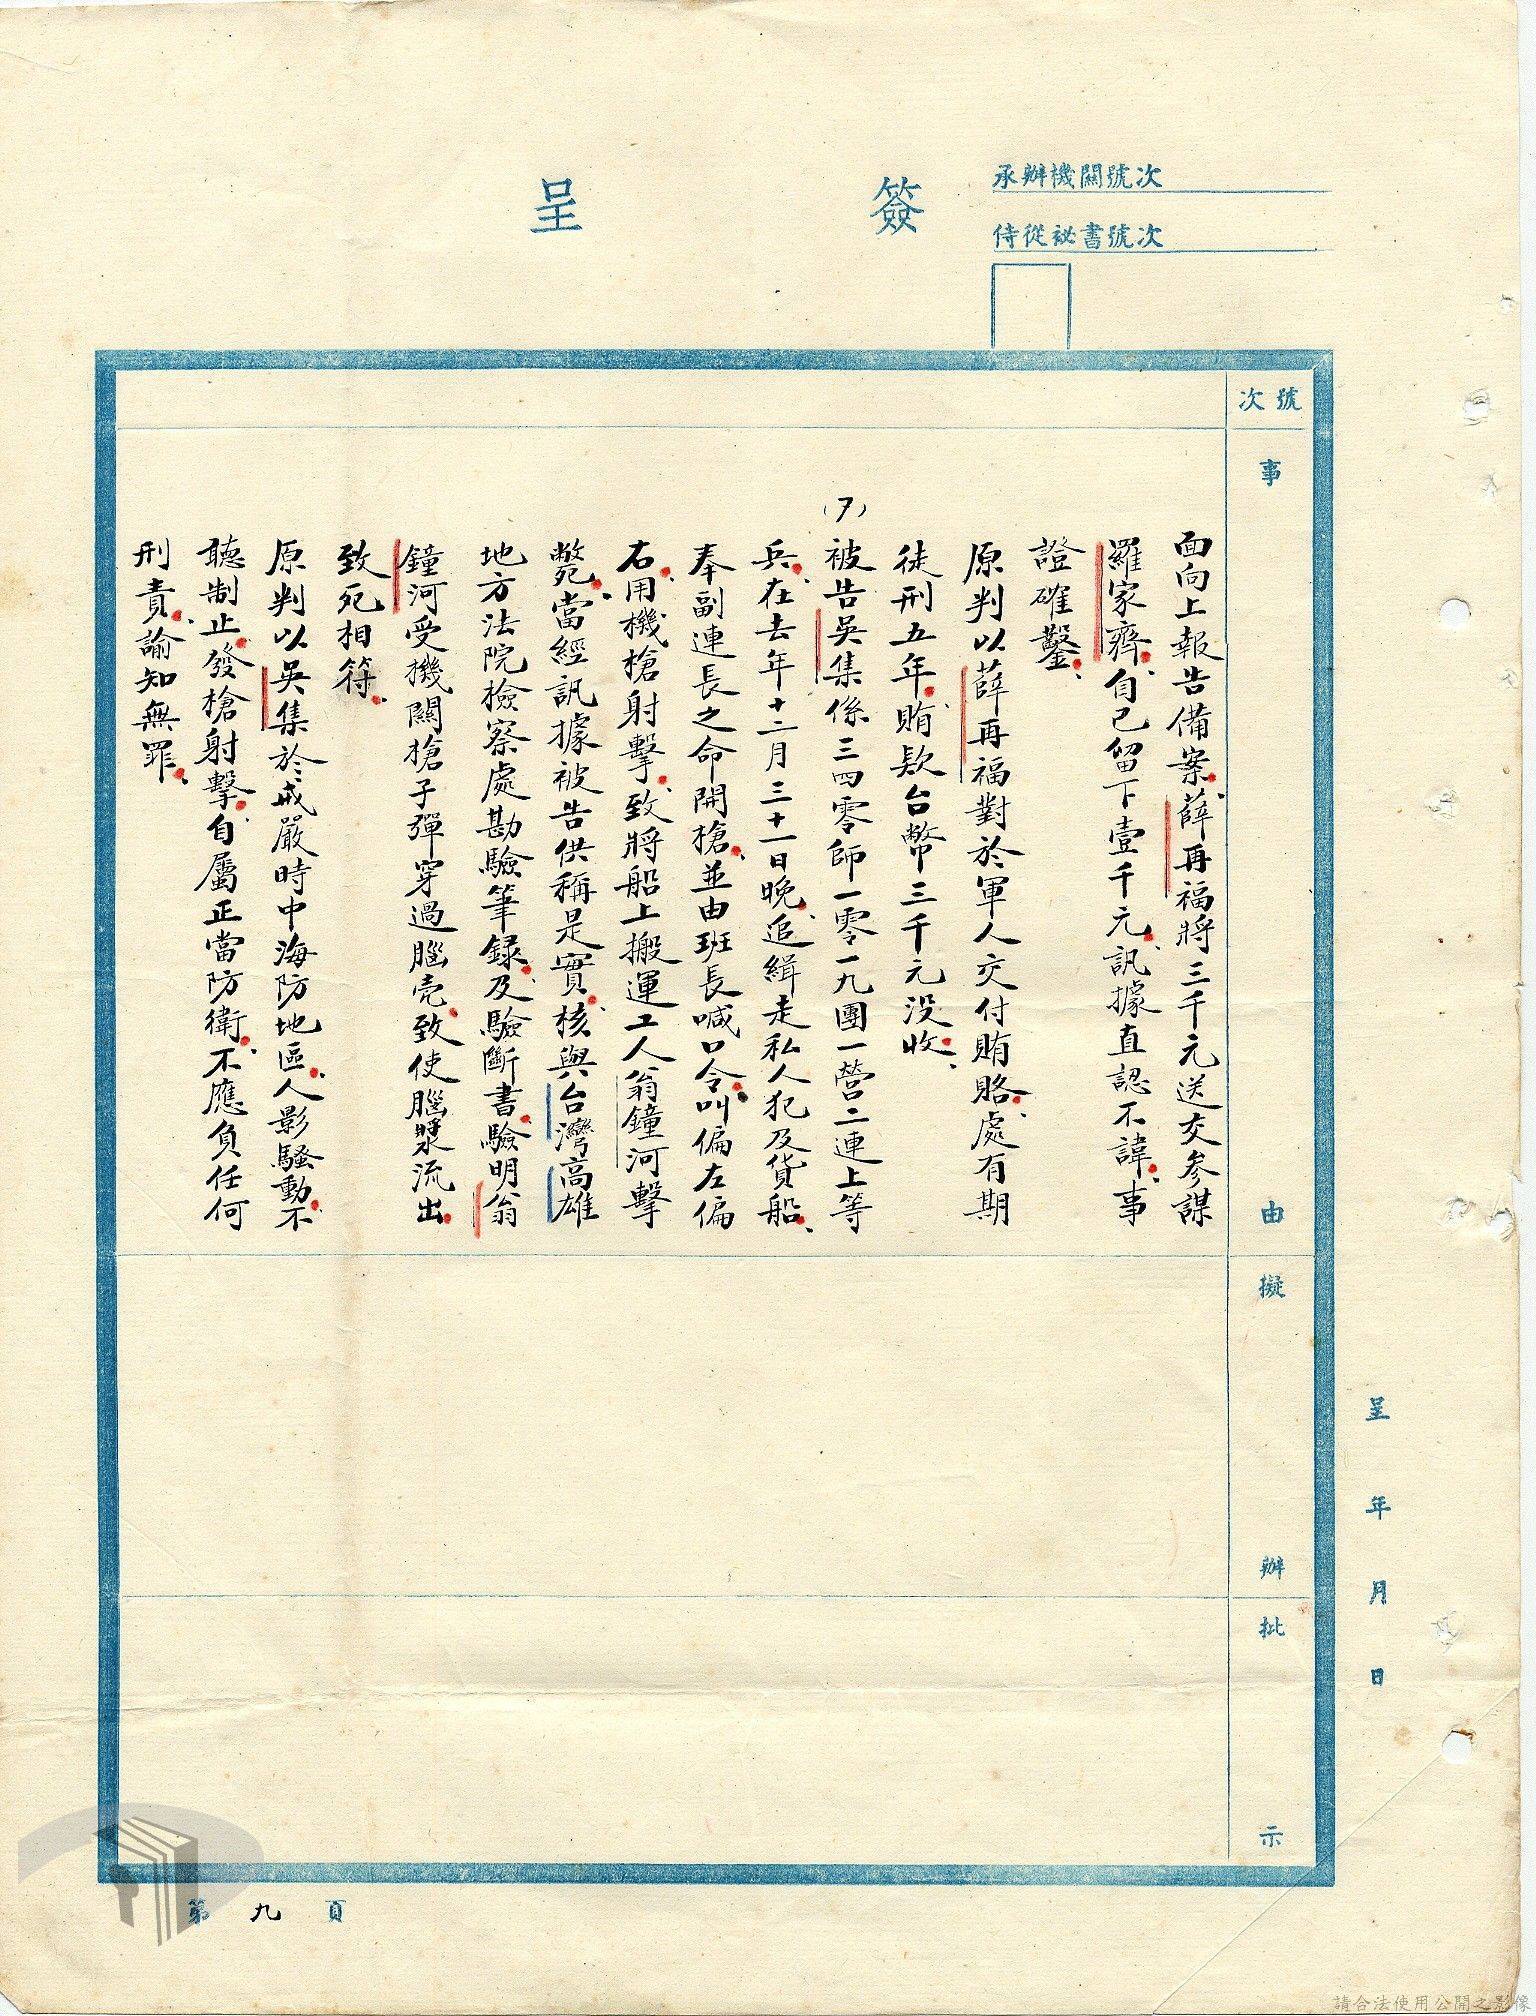 簽呈
承辦機關號次
侍從祕書號次
號次
事由
擬辦
批示
面向上報告備案、薛再福將三千元送交參謀
羅家齊、自己留下壹千元、訊據直認不諱、事
證確鑿、
原判以薛再福對於軍人交付賄賂、處有期
徒刑五年、賄欵台幣三千元没收、
(7)被告吳集係三四零師一零一九團一營二連上等
兵、在去年十二月三十一日晚、追緝走私人犯及貨船、
奉副連長之命開槍、並由班長喊口令叫偏左偏
右、用機槍射擊、致將船上搬運工人翁鐘河擊
斃、當經訊據被告供稱是實、核與台灣高雄
地方法院檢察處勘驗筆録、及驗斷書、驗明翁
鐘河受機關槍子彈穿過腦壳、致使腦漿流出、
致死相符、
原判以吳集於戒嚴時中海防地區、人影騷動、不
聽制止、發槍射擊、自屬正當防衛、不應負任何
刑責、諭知無罪、
呈 年 月 日
第九頁
請合法使用公開之影像